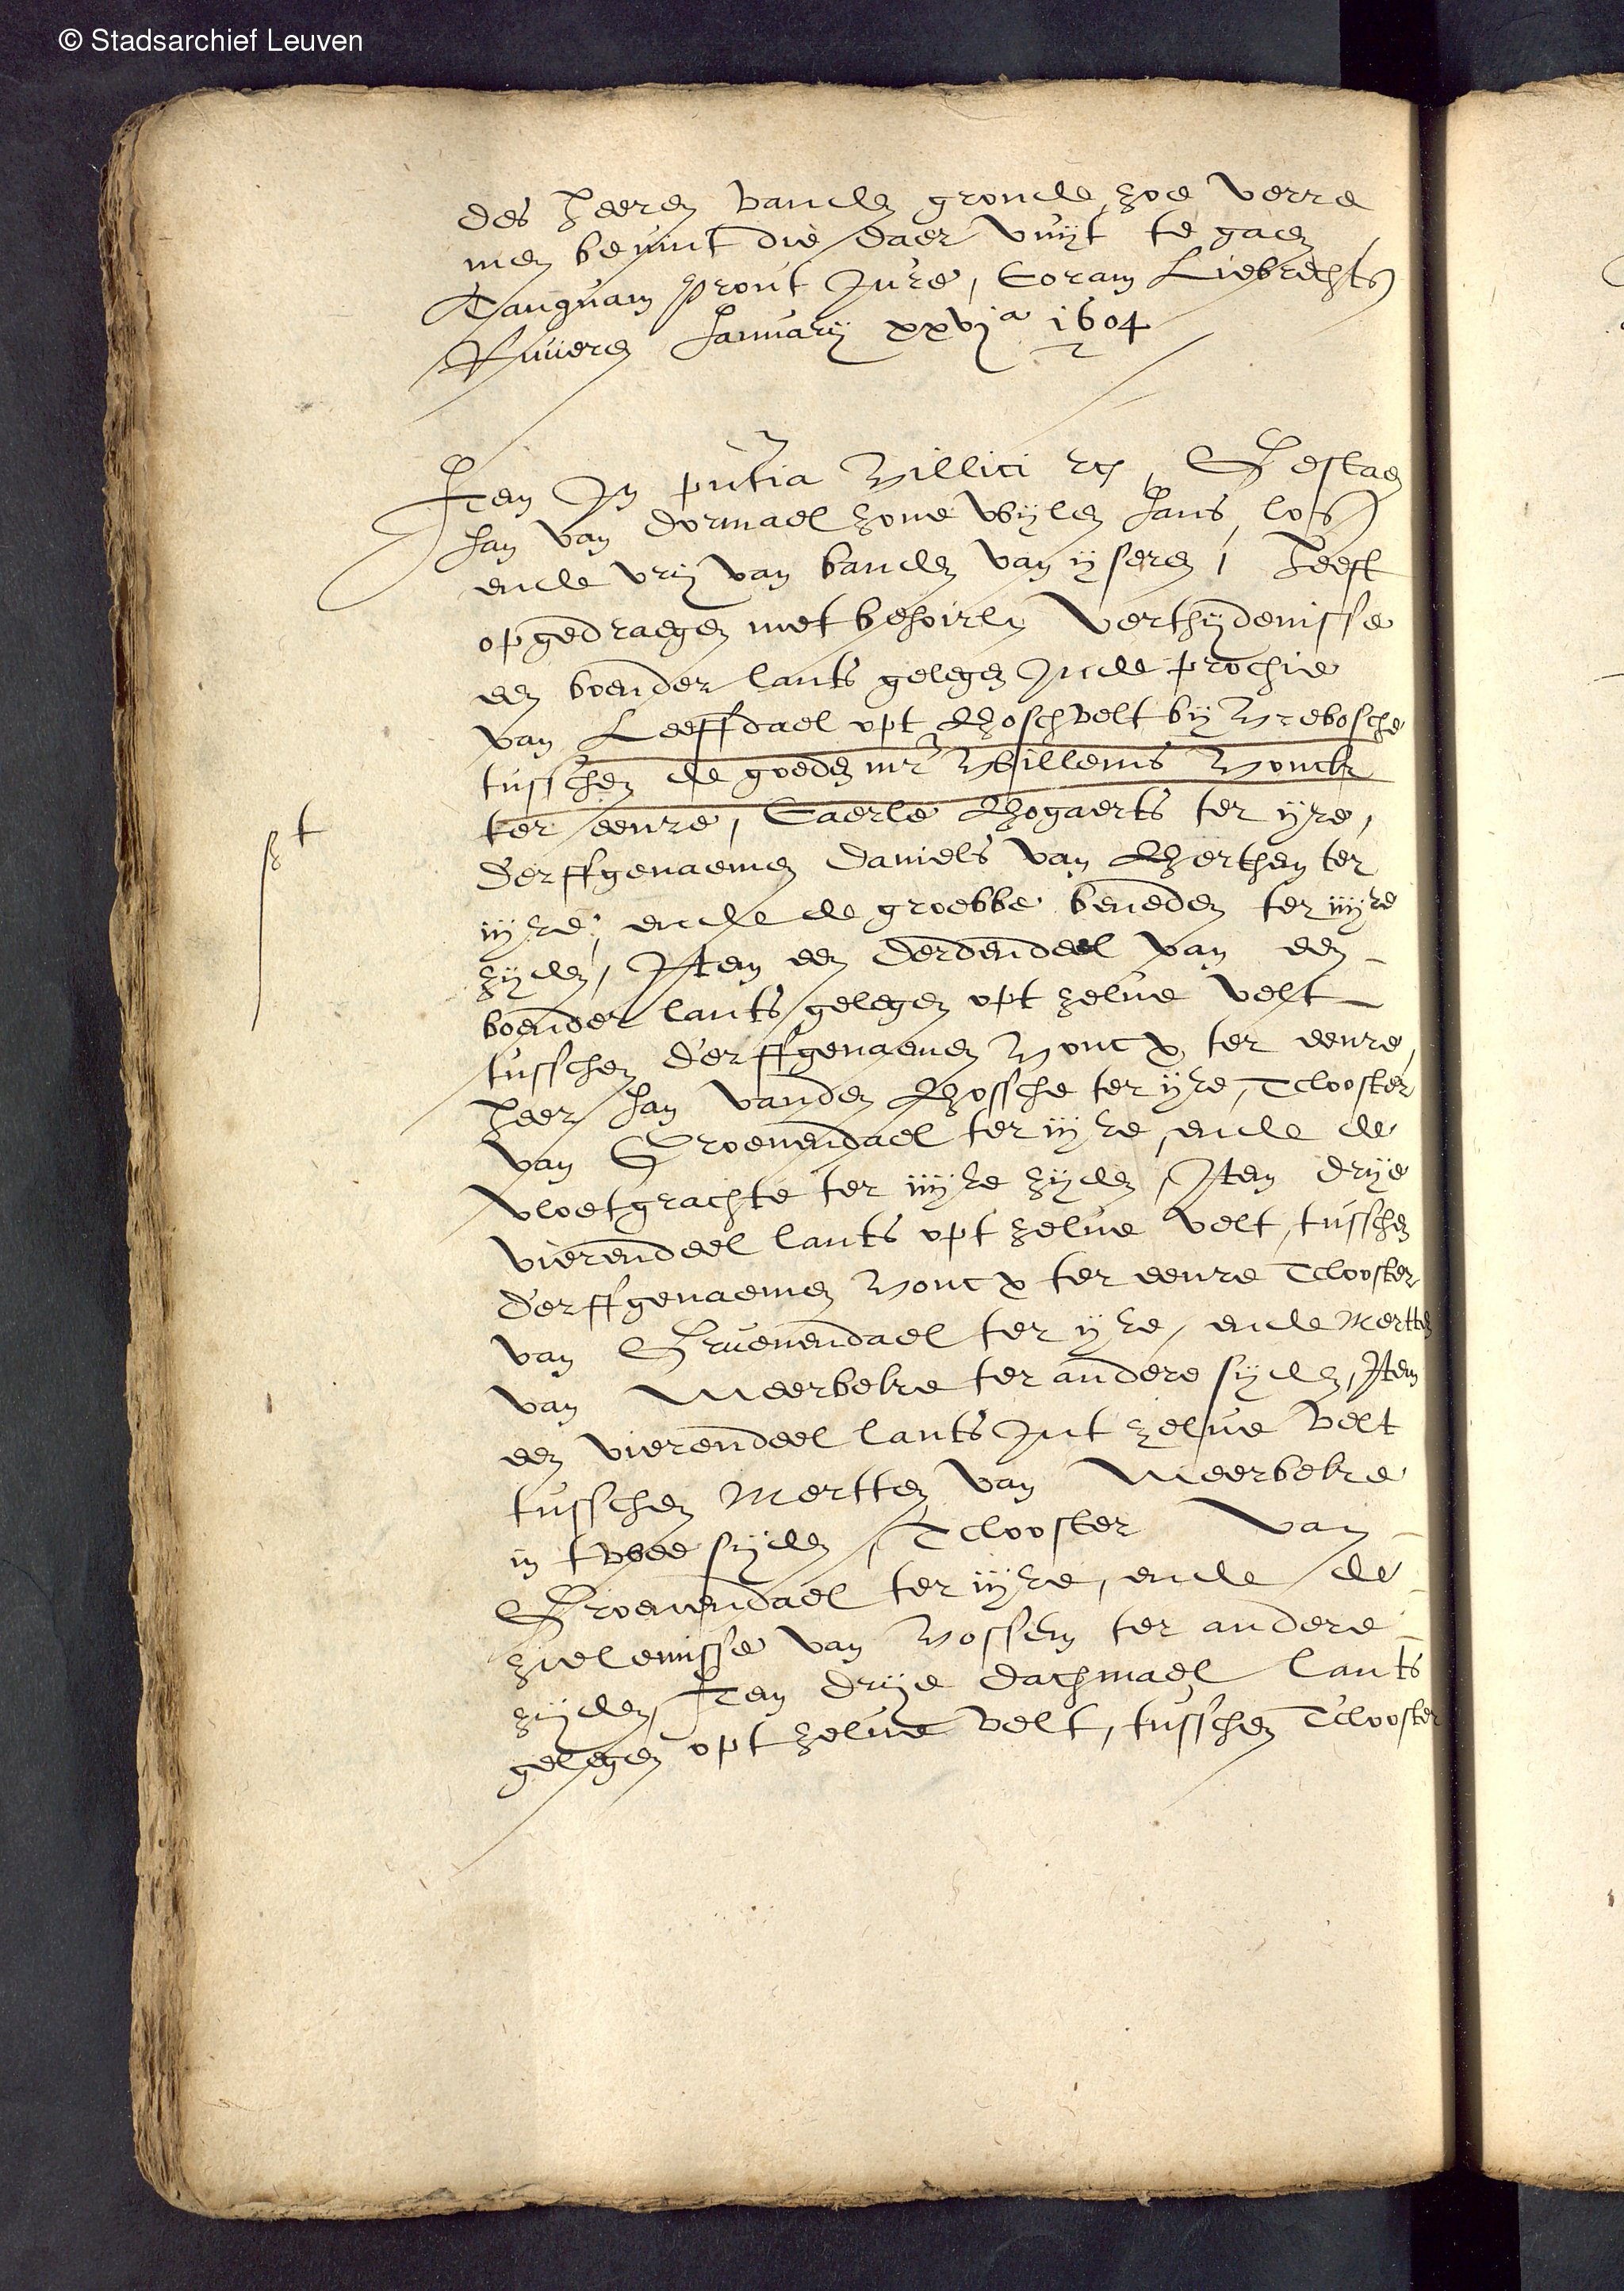 © Stadsarchief Leuven
des heeren vanden gronde, zoe verre
men bevint die daer vuyt te gaen
Tanquam prout Jure, Coram Liebrechts
Rivieren January xxvja 1604
Item In pntia Villici etc, Gestaen
Jan van Dormael zone wylen Jans, los
ende vry van banden van yseren, heeft
opgedraegen met behoirl verthydenisse
een boender lants gelegen Inde prochie
van Leeffdael opt Rhoschvelt by Vrebossche
tusschen de goeden mr Willems Vonck
ter eenre, Caerle Rhogaerts ter ijre,
D'erffgenaemen Daniels van Rherthem ter
iijre, ende de groebbe beneden ter iiijre
zyden, Item een derdendeel van een
boender lants gelegen opt zelve velt
tusschen d'erffgenaemen Voncx ter eenre,
heer Jan vanden Rhossche ter ijre, Tclooster
van Groenendael ter iijre, ende de
vloetgrachte ter iiijre zyden, Item drije
vierendeel lants opt zelve velt, tusschen
d'erffgenaemen Voncx ter eenre Tclooster
van Gruenendael ter ijre, ende Mertten
van Meerbeke ter andere syden, Item
een vierendeel lants Int zelve velt
tusschen Mertten van Meerbeke
in twee syden, Tclooster van
Groenendael ter iijre, ende de
zielemisse van Vossem ter andere
zyden, Item drije dachmael lants
gelegen opt zelve velt, tusschen Tclooster